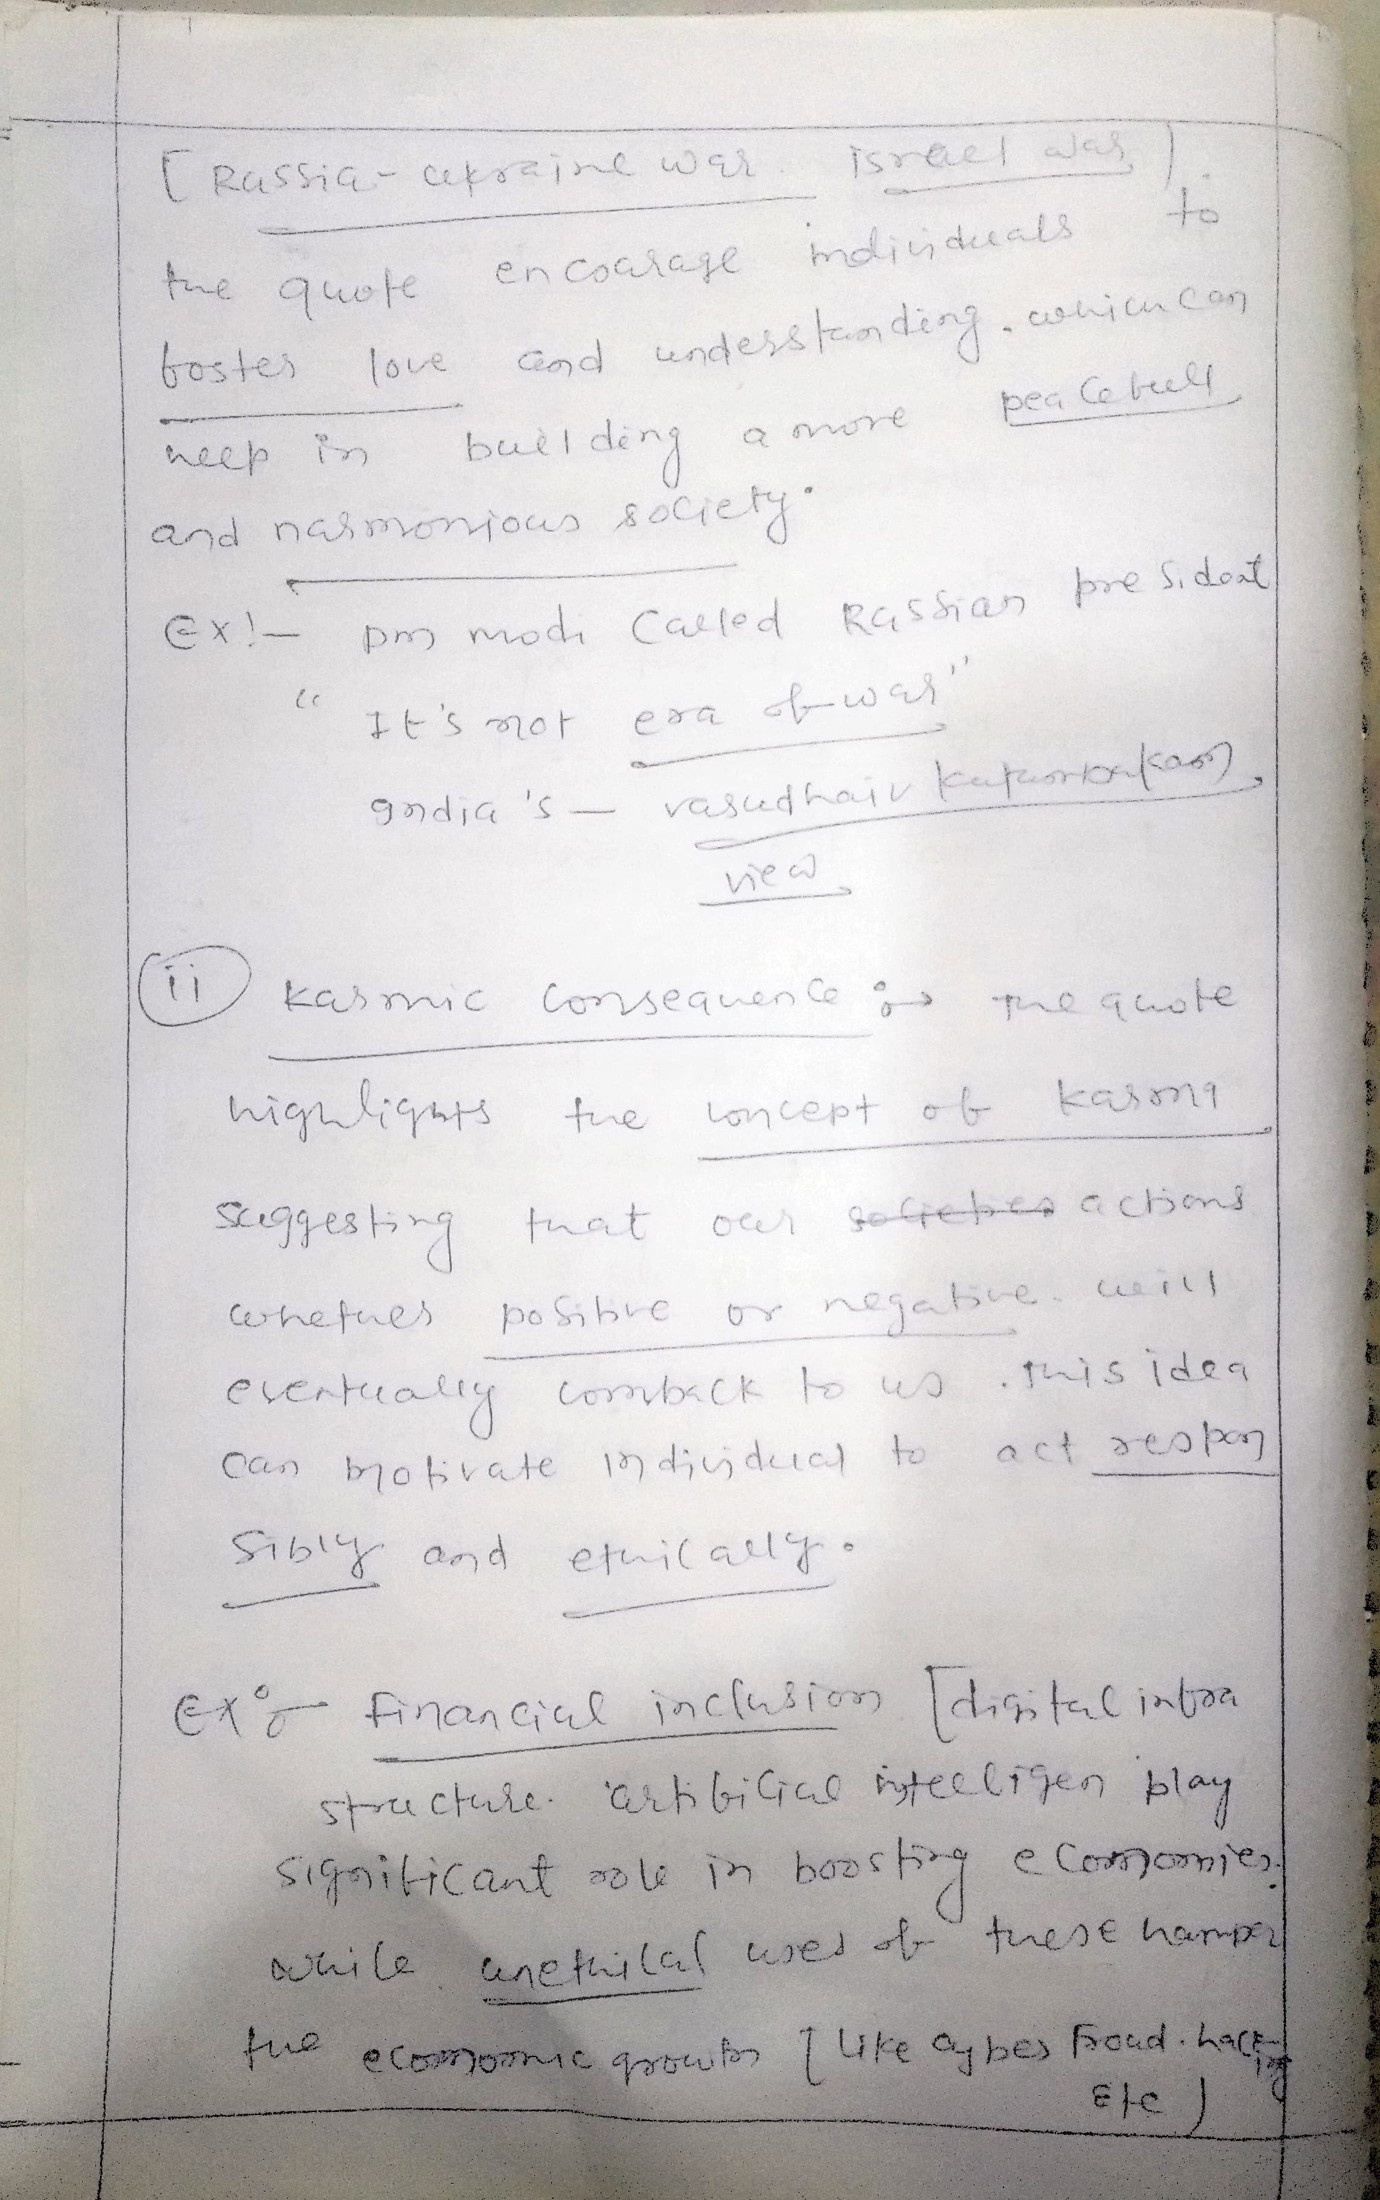 [ Russia - ukraine war. israel war ].
the quote encourage individuals to
foster love and understanding. which can
help in building a more peacefull
and harmonious society.
Ex:- pm modi called Russian president
"It's not era of war"
India's - vasudhaiv kutumbakam
view
(ii) karmic consequence :- The quote
highlights the concept of karma
suggesting that our societies actions
whether positive or negative. will
eventually comback to us. This idea
can motivate individual to act respon
sibly and ethically.
Ex:- financial inclusion [digital infra
structure. artificial intelligen play
significant role in boosting economies.
while unethical uses of these hamper
the economic growth [ like cyber froud. hacking
etc )